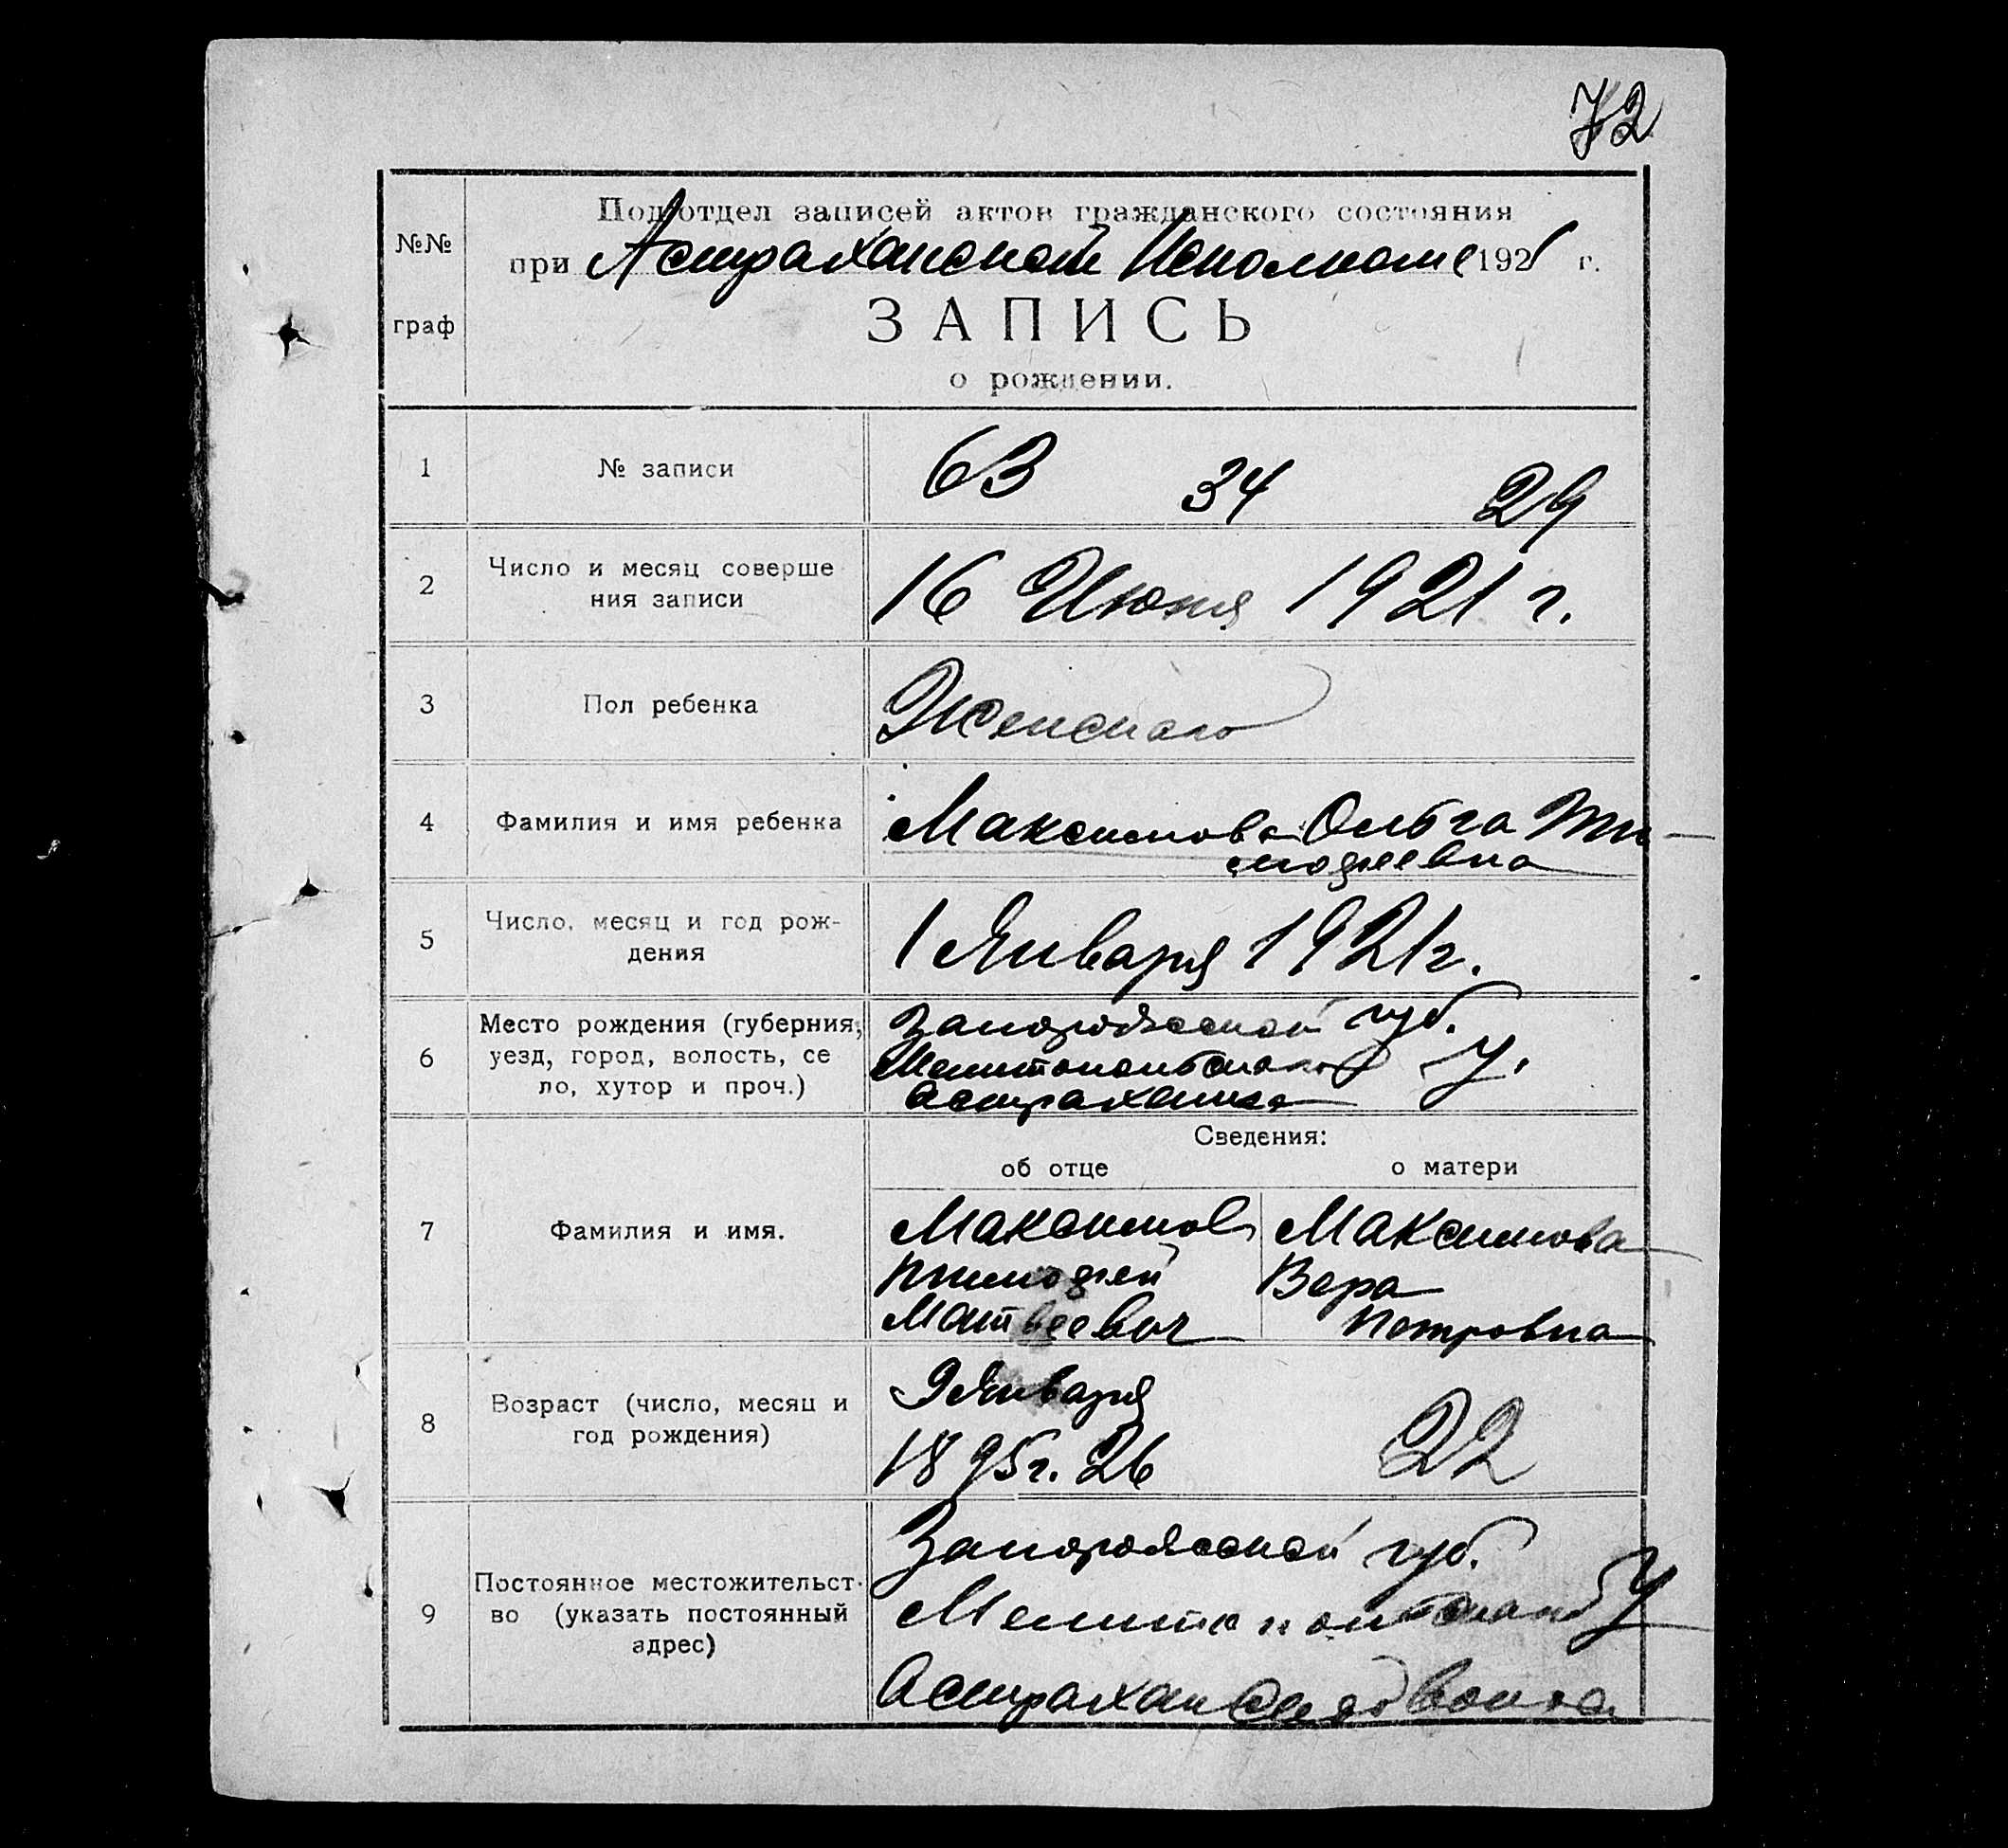 72
№№
граф
Подотдел записей актов гражданского состояния
при Астраханском Исполкоме 1921 г.
ЗАПИСЬ
о рождении.
1 № записи 63 34 29
2 Число и месяц соверше
ния записи 16 Июня 1921 г.
3 Пол ребенка Женскаго
4 Фамилия и имя ребенка Максимова Ольга Ти
мофеевна
5 Число, месяц и год рож-
дения 1 Января 1921 г.
6 Место рождения (губерния,
уезд, город, волость, се
ло, хутор и проч.)
Запорожской губ.
Мелитопольскаго у.
Астраханка
Сведения:
об отце о матери
7 Фамилия и имя.
Максимов Максимова
Тимофей Вера
Матвеевич Петровна
8 Возраст (число, месяц и
год рождения)
9 Января
1895 г. 26 22
9 Постоянное местожительст-
во (указать постоянный
адрес)
Запорожской губ.
Мелитопольскаго У
Астраханской